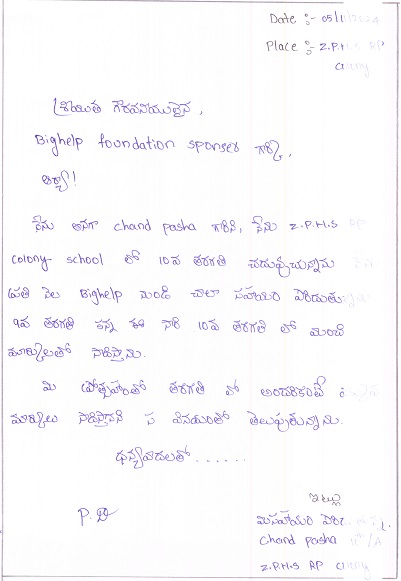 Date :- 05/11/2024
Place :- Z.P.H.S RP
colony
శ్రీయుత గౌరవనీయులైన,
Bighelp foundation sponser గార్కి,
ఆర్యా!
నేను అనగా chand pasha గారిని, నేను Z.P.H.S RP
colony- school లో 10వ తరగతి చదువుచున్నాను
ప్రతి నెల Bighelp నుండి చాలా సహాయం పొందుతున్నాను
9వ తరగతి కన్న ఈ సారి 10వ తరగతి లో మంచి
మార్కులతో సాధిస్తాను.
మీ ప్రోత్సాహంతో తరగతి లో అందరికంటే
మార్కులు సాధిస్తానని స వినయంతో తెలుపుతున్నాను.
ధన్యవాదలతో......
ఇట్లు
P.
మీసహాయం
chand pasha 10th/A
Z.P.H.S RP colony